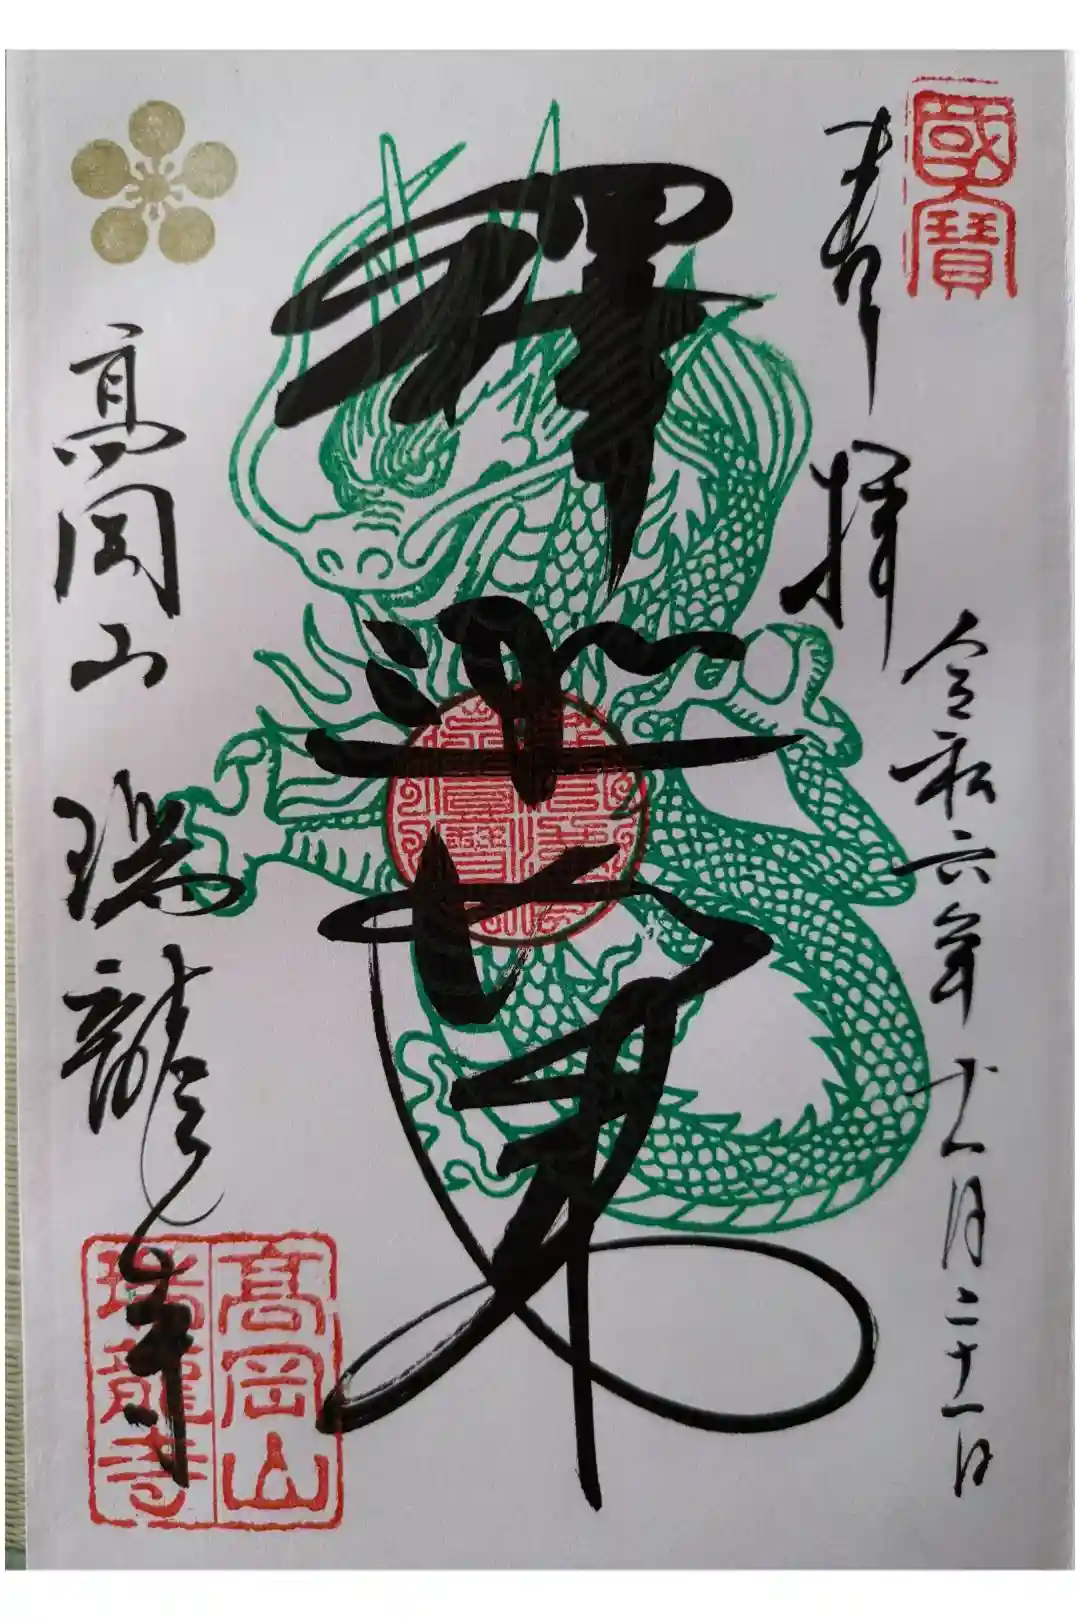 國寶
奉拝
令和六年十一月二十一日
釋迦如来
高岡山 瑞龍寺
髙岡山
瑞龍寺